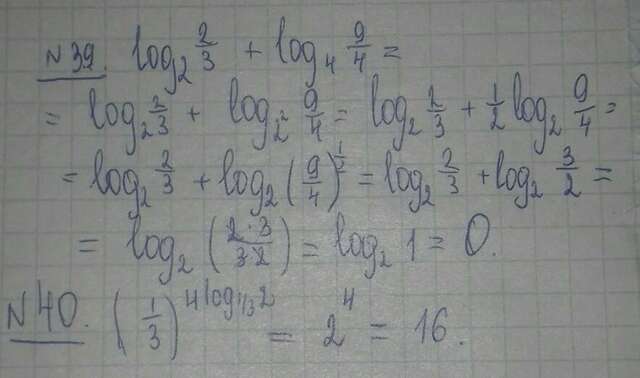 N 39. log₂ 2/3 + log₄ 9/4 =
= log₂ 2/3 + log₂² 9/4 = log₂ 2/3 + 1/2 log₂ 9/4 =
= log₂ 2/3 + log₂ (9/4)^1/2 = log₂ 2/3 + log₂ 3/2 =
= log₂ (2·3/3·2) = log₂ 1 = 0.
N 40. (1/3)^(4 log_1/3 2) = 2⁴ = 16.